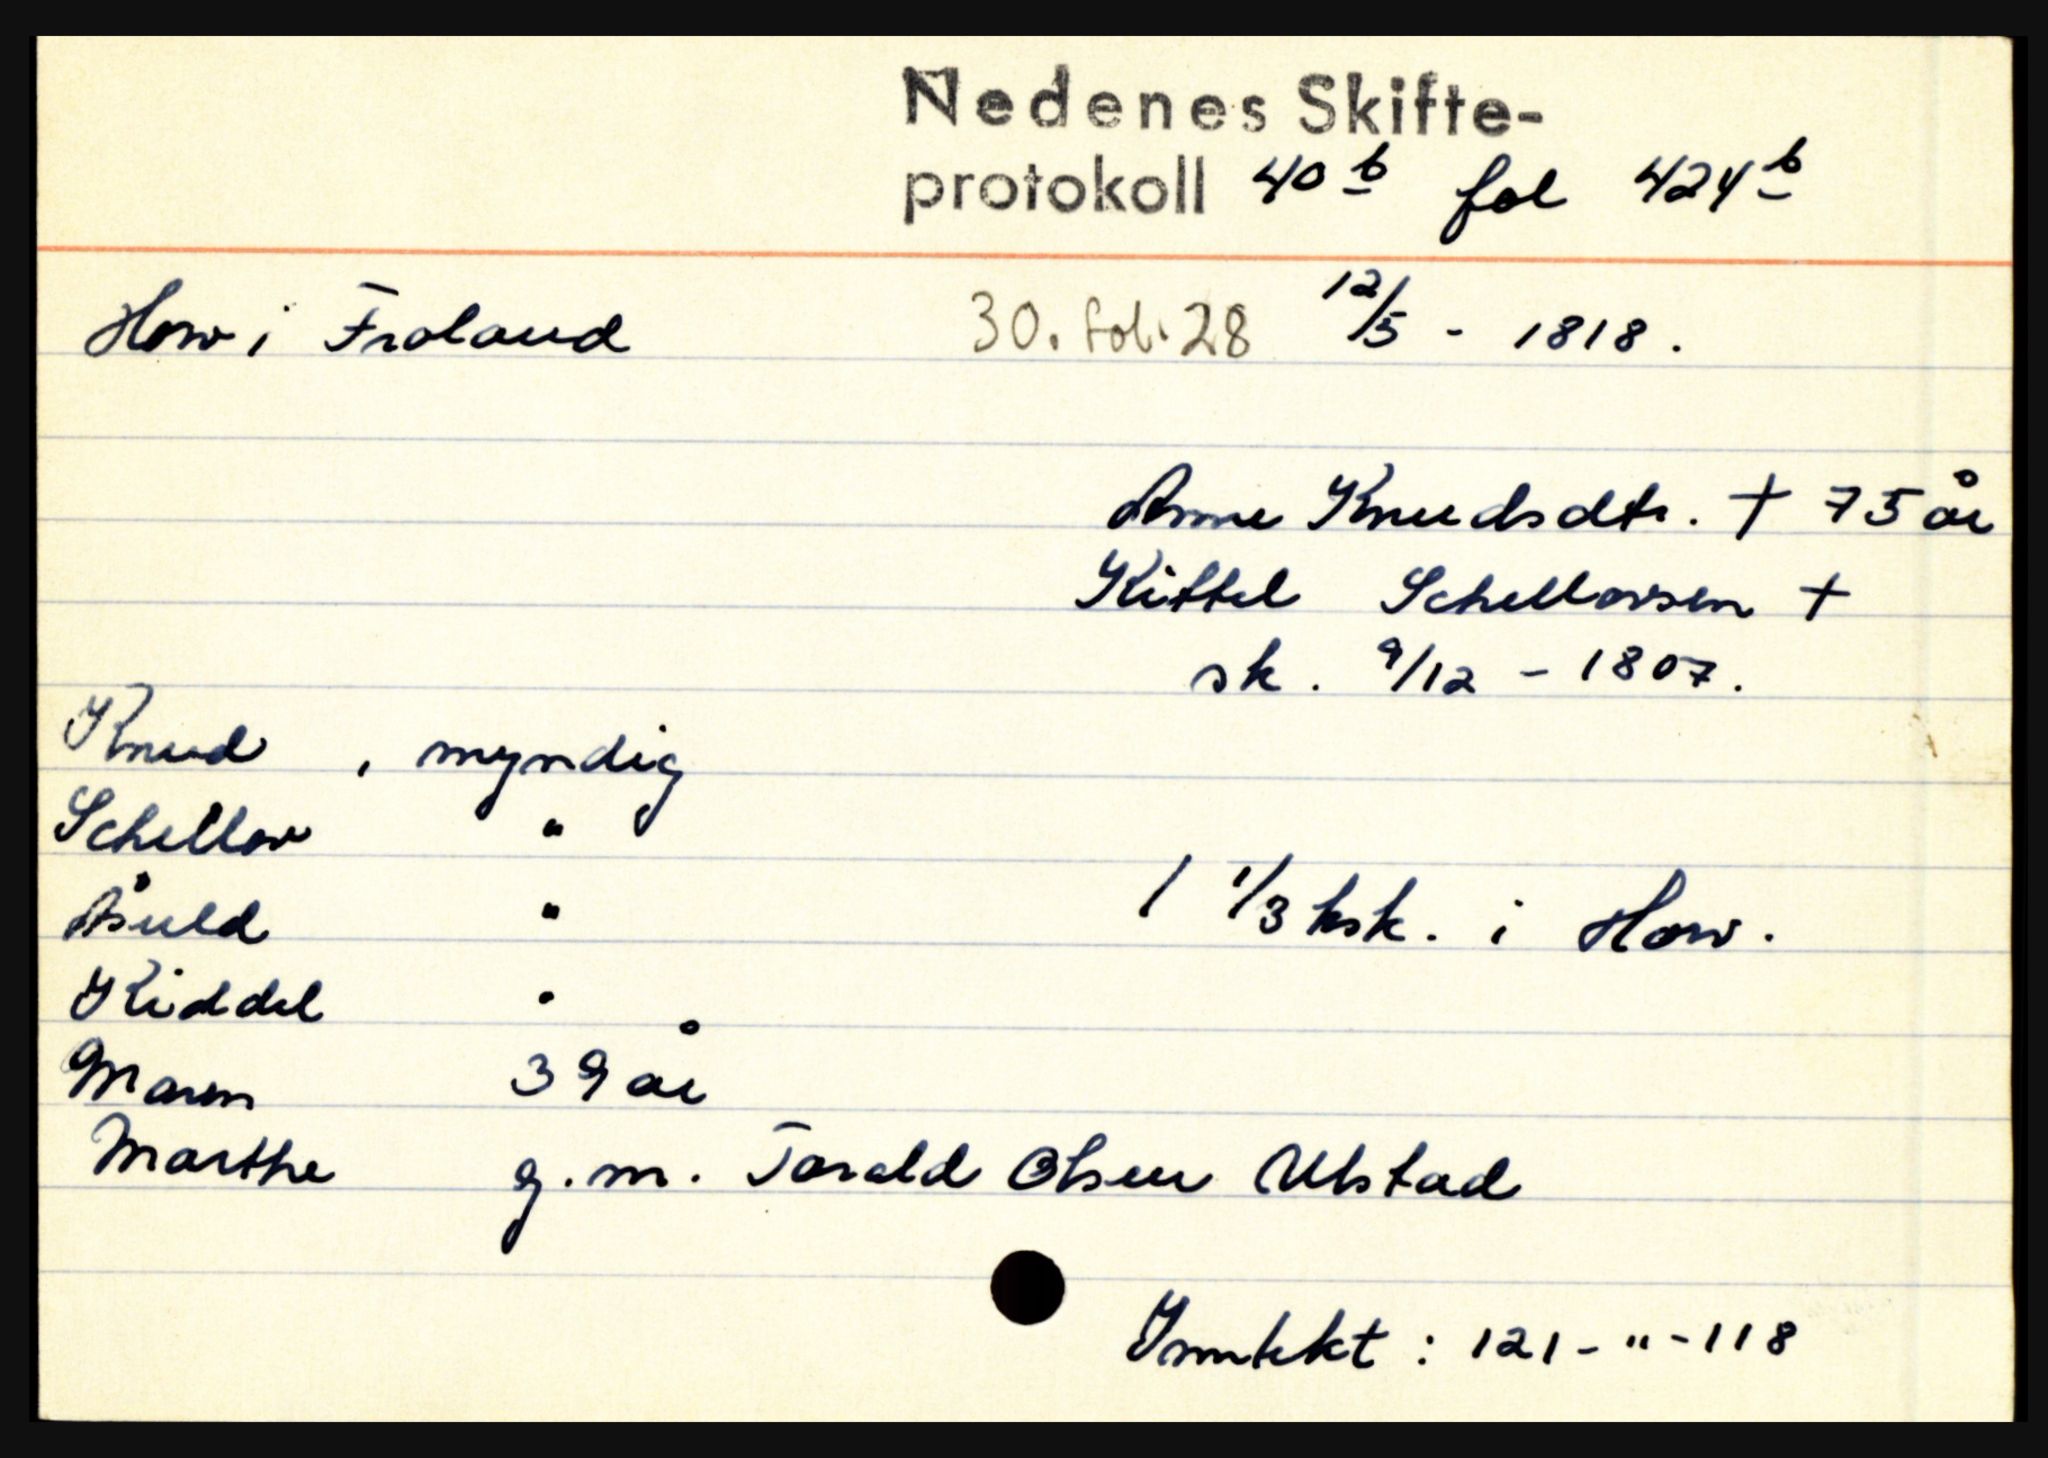 Nedenes Skifte-
protokoll 40 b fol 424 b
How i Froland 30. fol. 28 12/5 - 1818.
Anne Knudsdtr. † 75 år
Kittel Schellovsen †
sk. 9/12 - 1807.
Knud , myndig
Schellov "
Åsuld " 1 1/3 ksk. i How.
Kiddel "
Maren 39 år
Marthe g.m. Torald Olsen Ulstad
Inntekt : 121 - " - 118